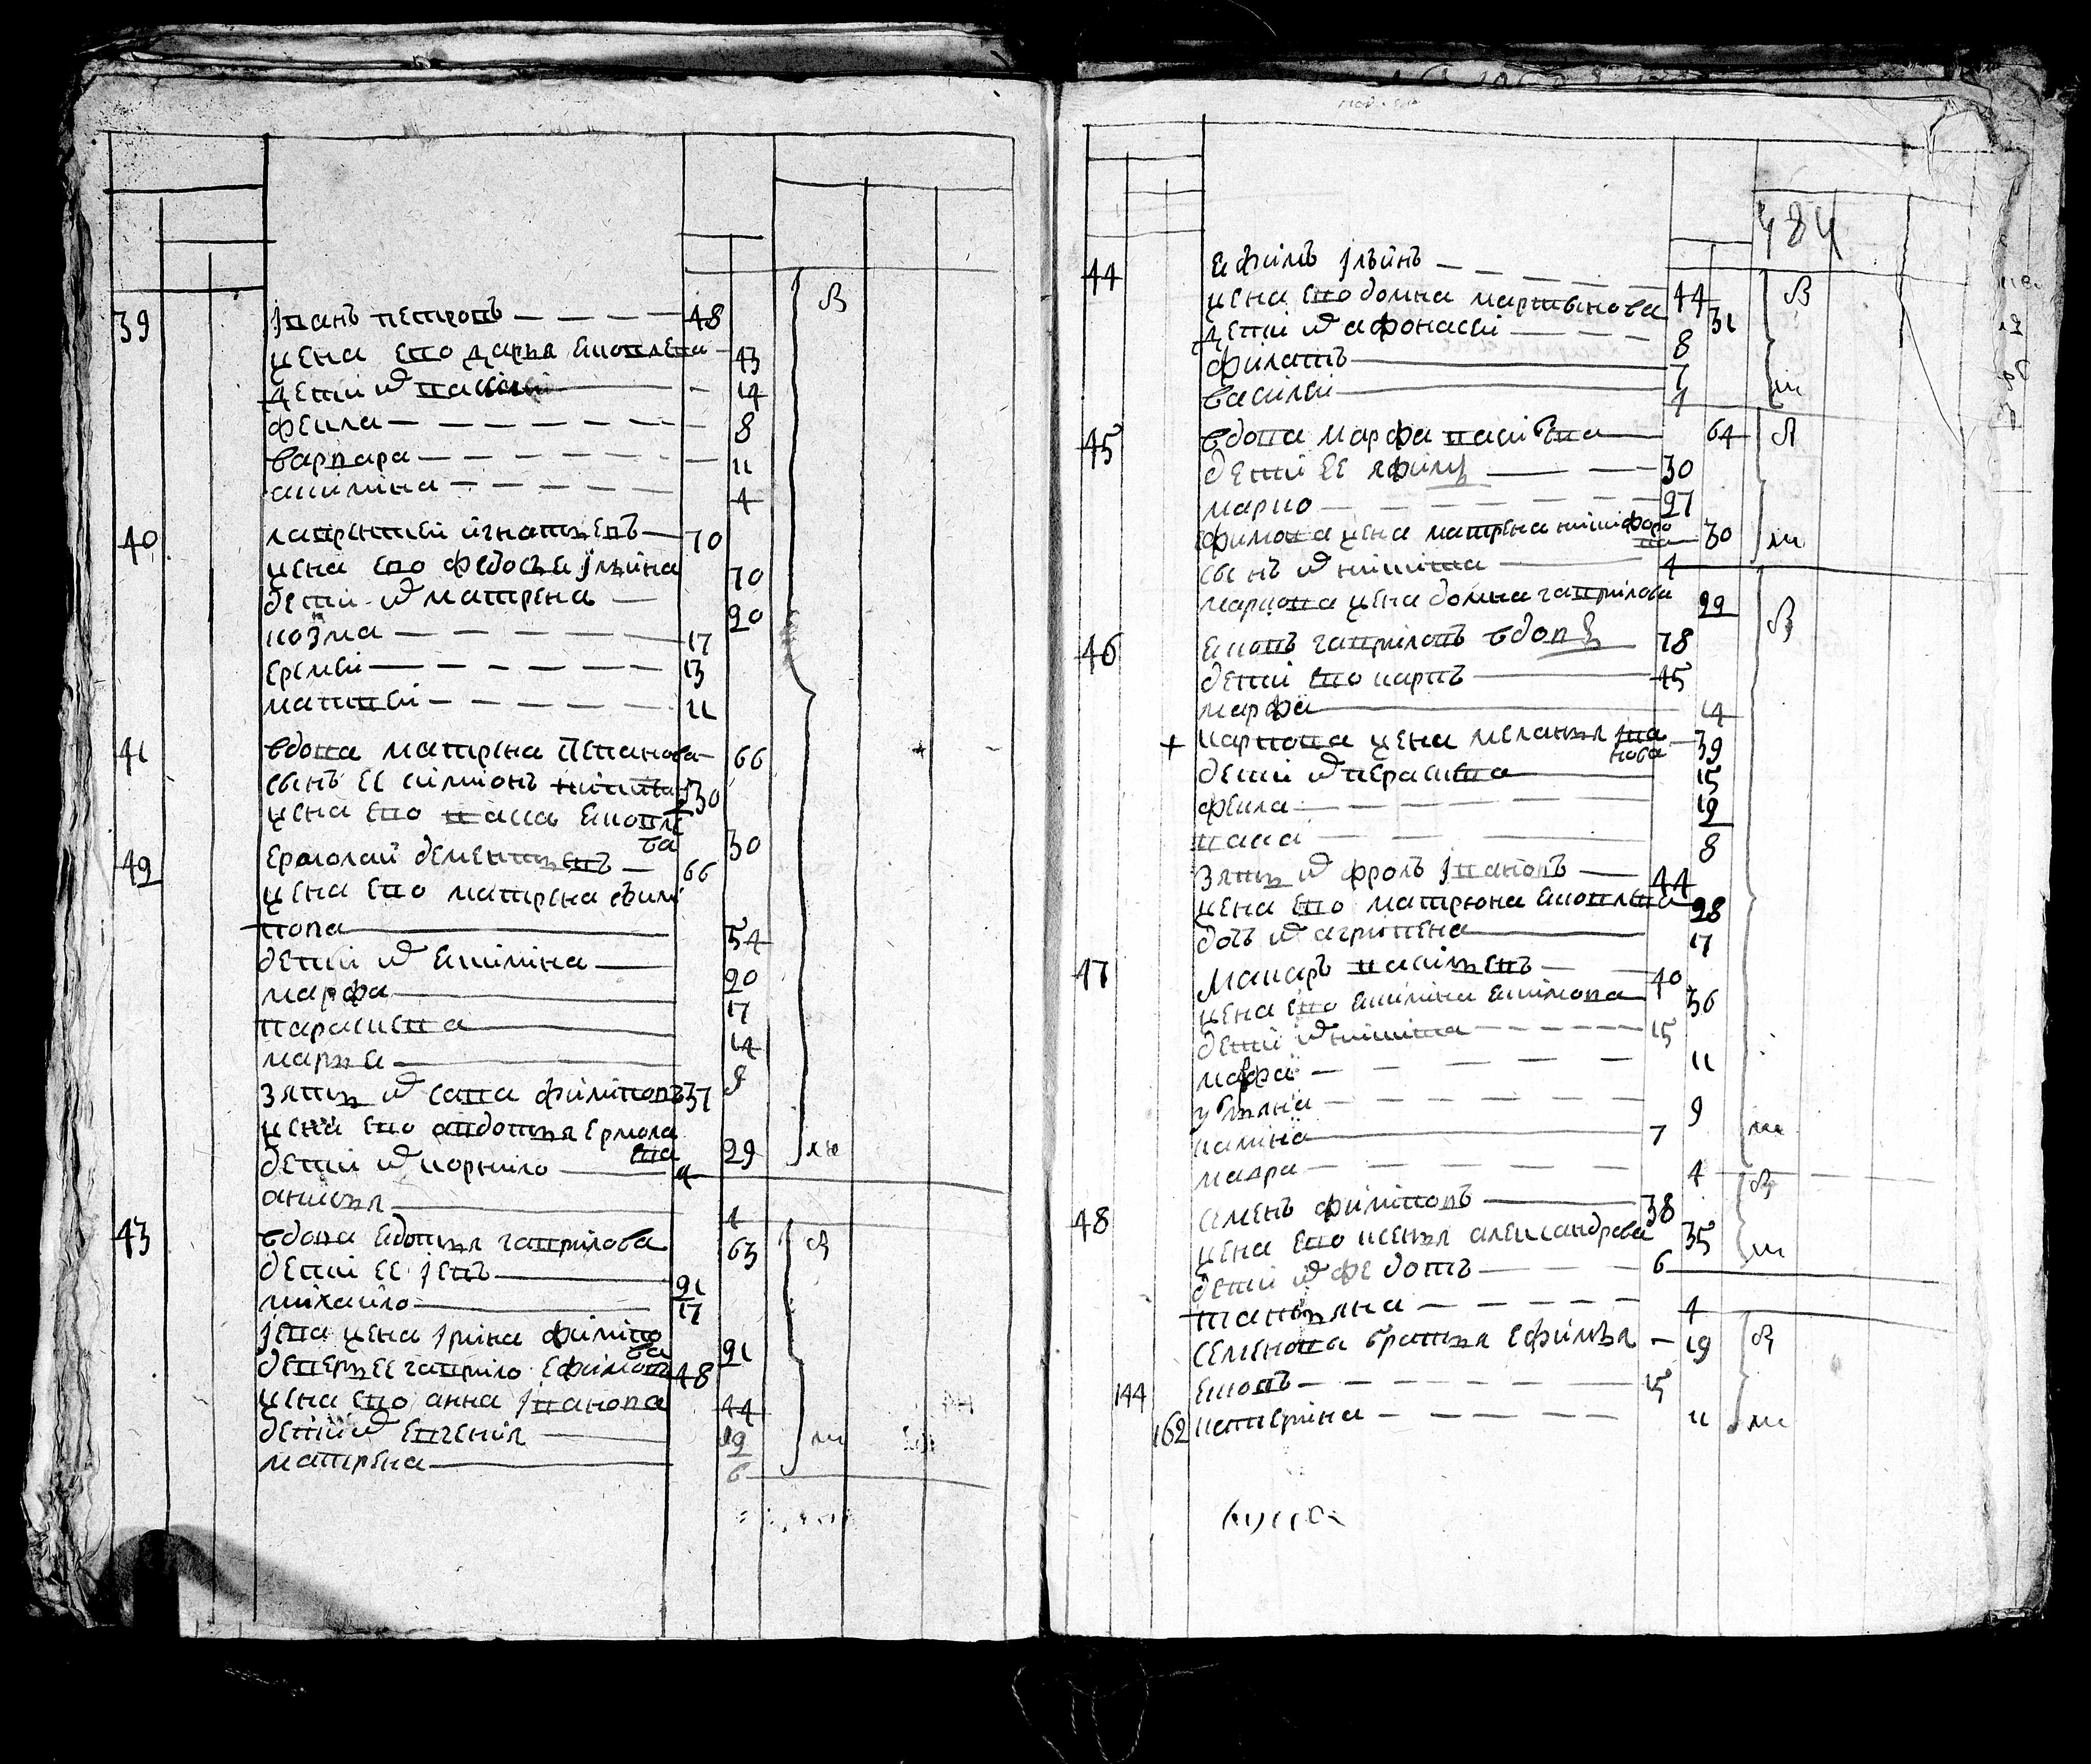 39 іванъ петровъ 48
жена ево дарья ековлева 43
дети их василей 14
фекла 8
варвара 11
акилина 4
40 лаврентей игнатьевъ 70
жена ево федосья ильина 70
дети их матрена 20
козма 17
еремей 13
матвей 11
41 вдова матрена степанова 66
сынъ ее симионъ никитинъ 30
жена ево васса ековле
ва 30
42 ермолай дементьевъ 66
жена ево матрена фили
пова 54
дети их екилина 20
марфа 17
парасковья 14
марья 9
зять их сава филиповъ 37
жена ево овдотья ермола
ева 29
дети их корнило
анисья 1
43 вдова евдотья гаврилова 63
дети ее іевъ 21
михайло 17
іева жена ирина филипо
ва 21
деверь ее гаврило ефимовъ 48
жена ево анна іванова 44
дети их евгения 12
матрена 6
484
44 ефимъ ильинъ 44
жена ево домна мартынова 31
дети их афонасей 8
филатъ 7
василей 1
45 вдова марфа васильева 64
дети ее ефимъ 30
марко 27
фимова жена матрена никифоро
ва 30
сынъ их никита 1
маркова жена домна гаврилова 22
46 яковъ гавриловъ вдовъ 78
дети ево карпъ 45
марфа 14
+ карпова жена меланья ива
нова 39
дети их парасковья 15
фекла 12
васа 8
зять их фролъ ивановъ 44
жена ево матрона ековлева 28
доч их агрипена 17
47 макаръ васильевъ 40
жена ево екилина екимова 36
дети их никита 15
марфа 11
ульяна 9
калина 7
мавра 4
48 семенъ филиповъ 38
жена ево ксенья александрова 35
дети их федотъ 6
татьяна 1
семенова братья ефимья 19
144 яковъ 15
162 катерина 11